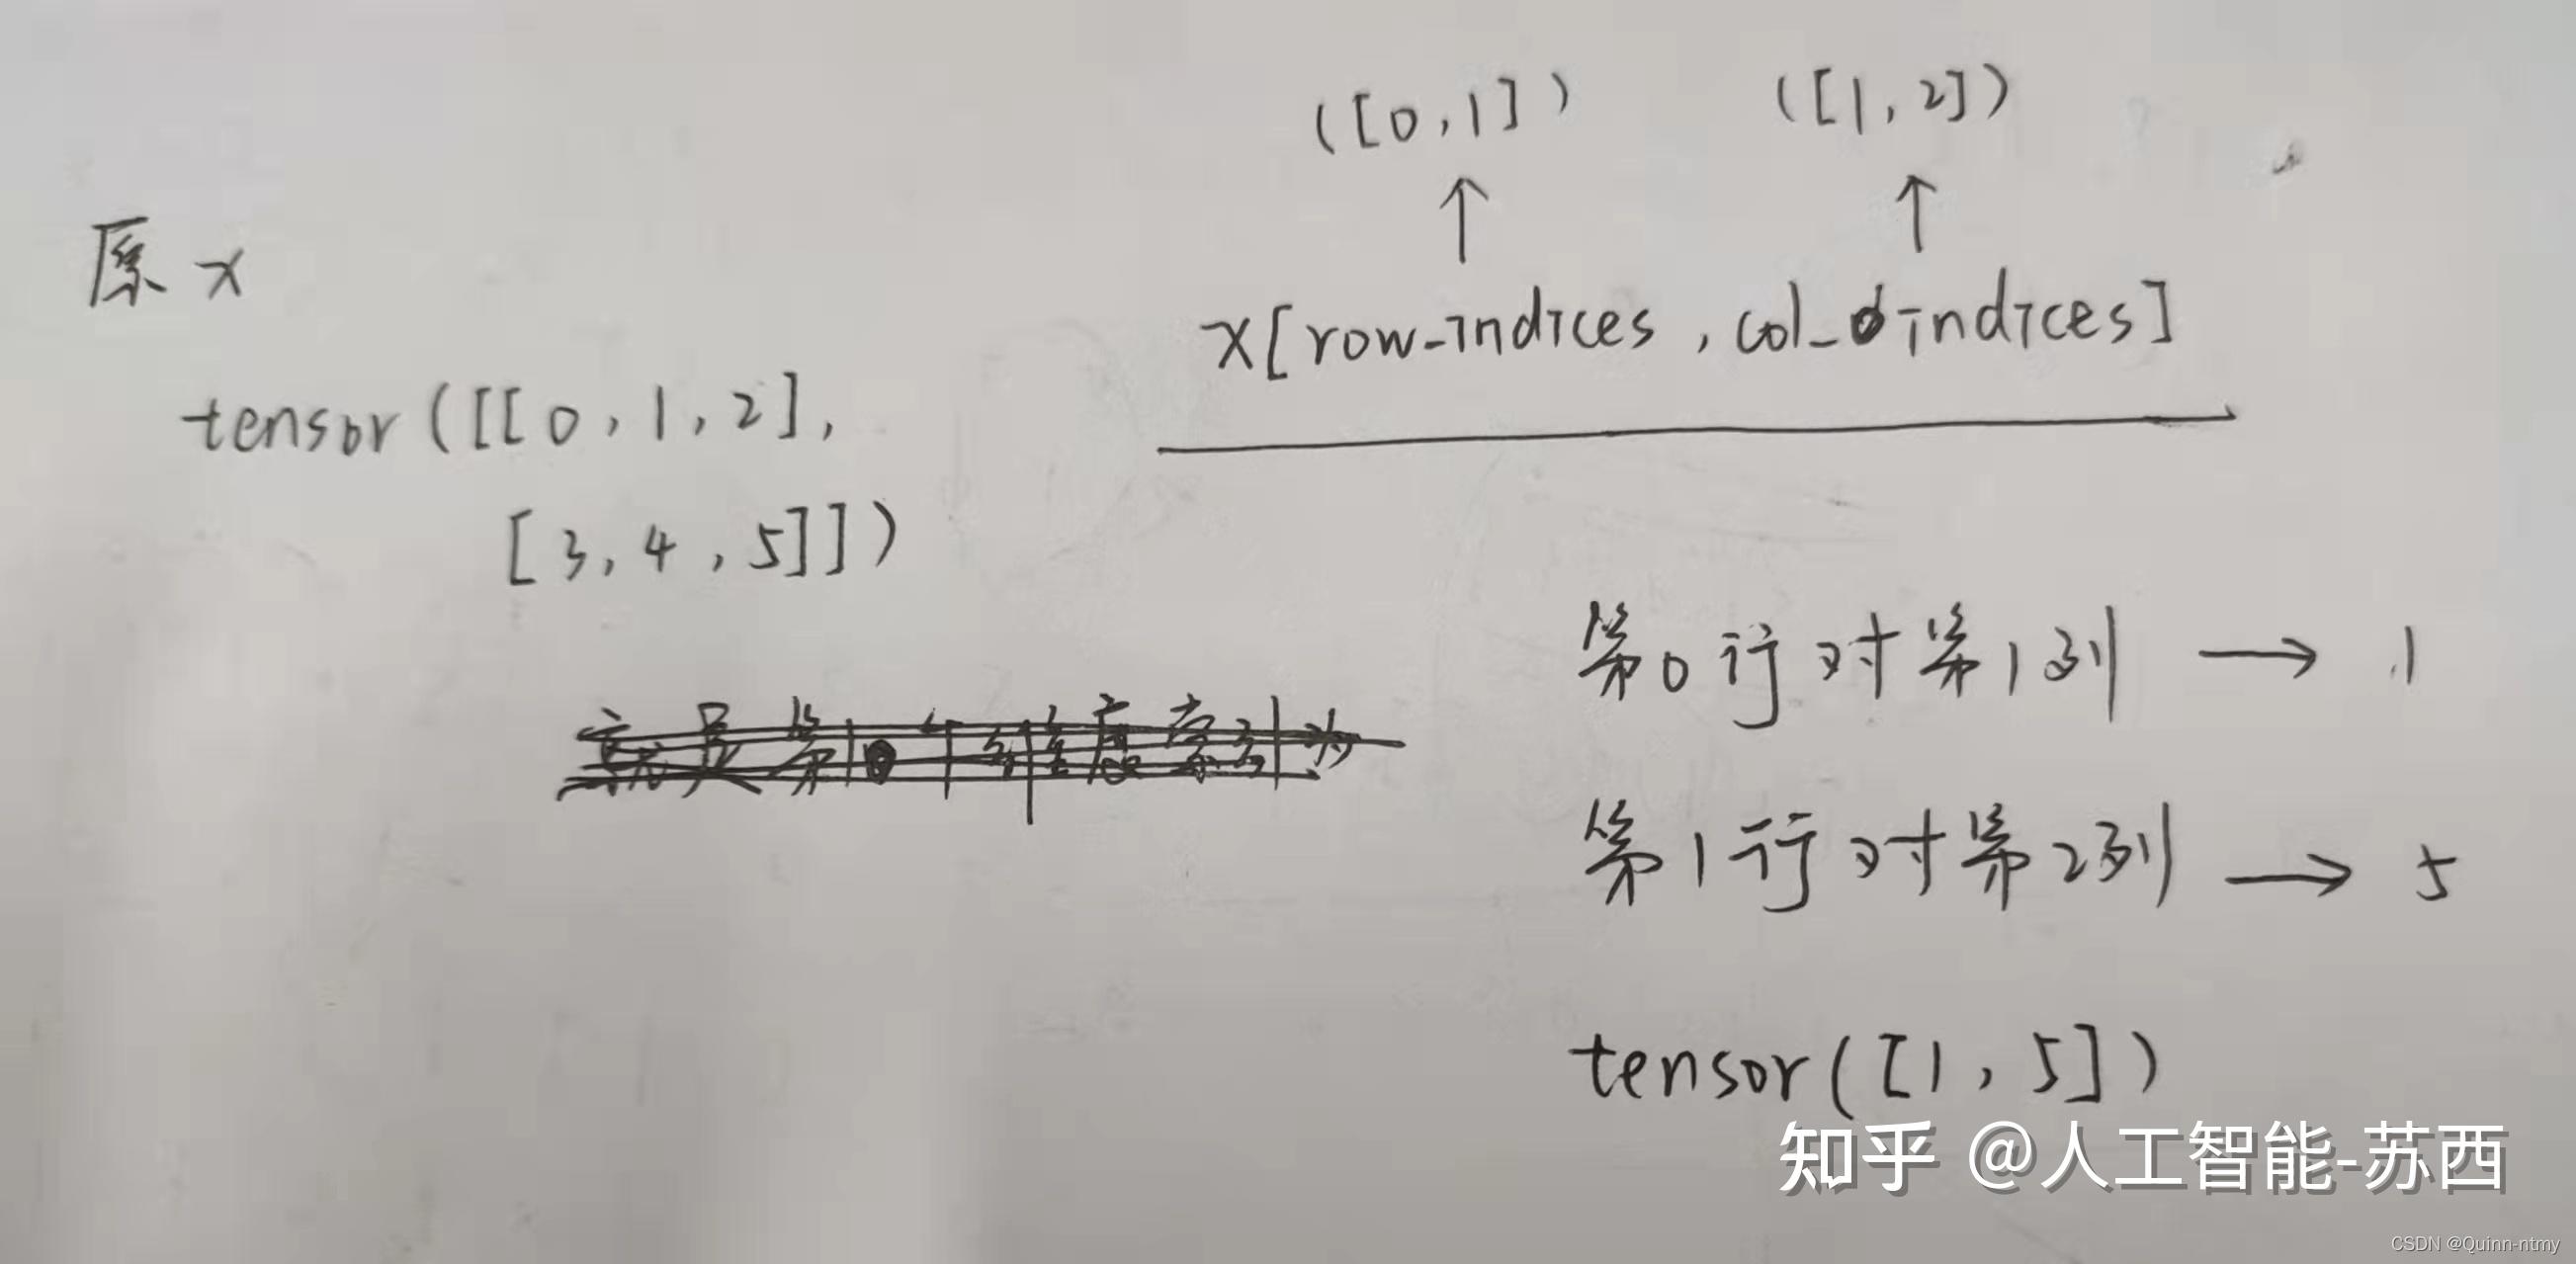 原x
tensor([[0,1,2],
[3,4,5]])
([0,1]) ([1,2])
↑ ↑
x[row-indices,col_indices]
第0行对第1列 → 1
第1行对第2列 → 5
tensor([1,5])
知乎 @人工智能-苏西
CSDN @Quinn-ntmy